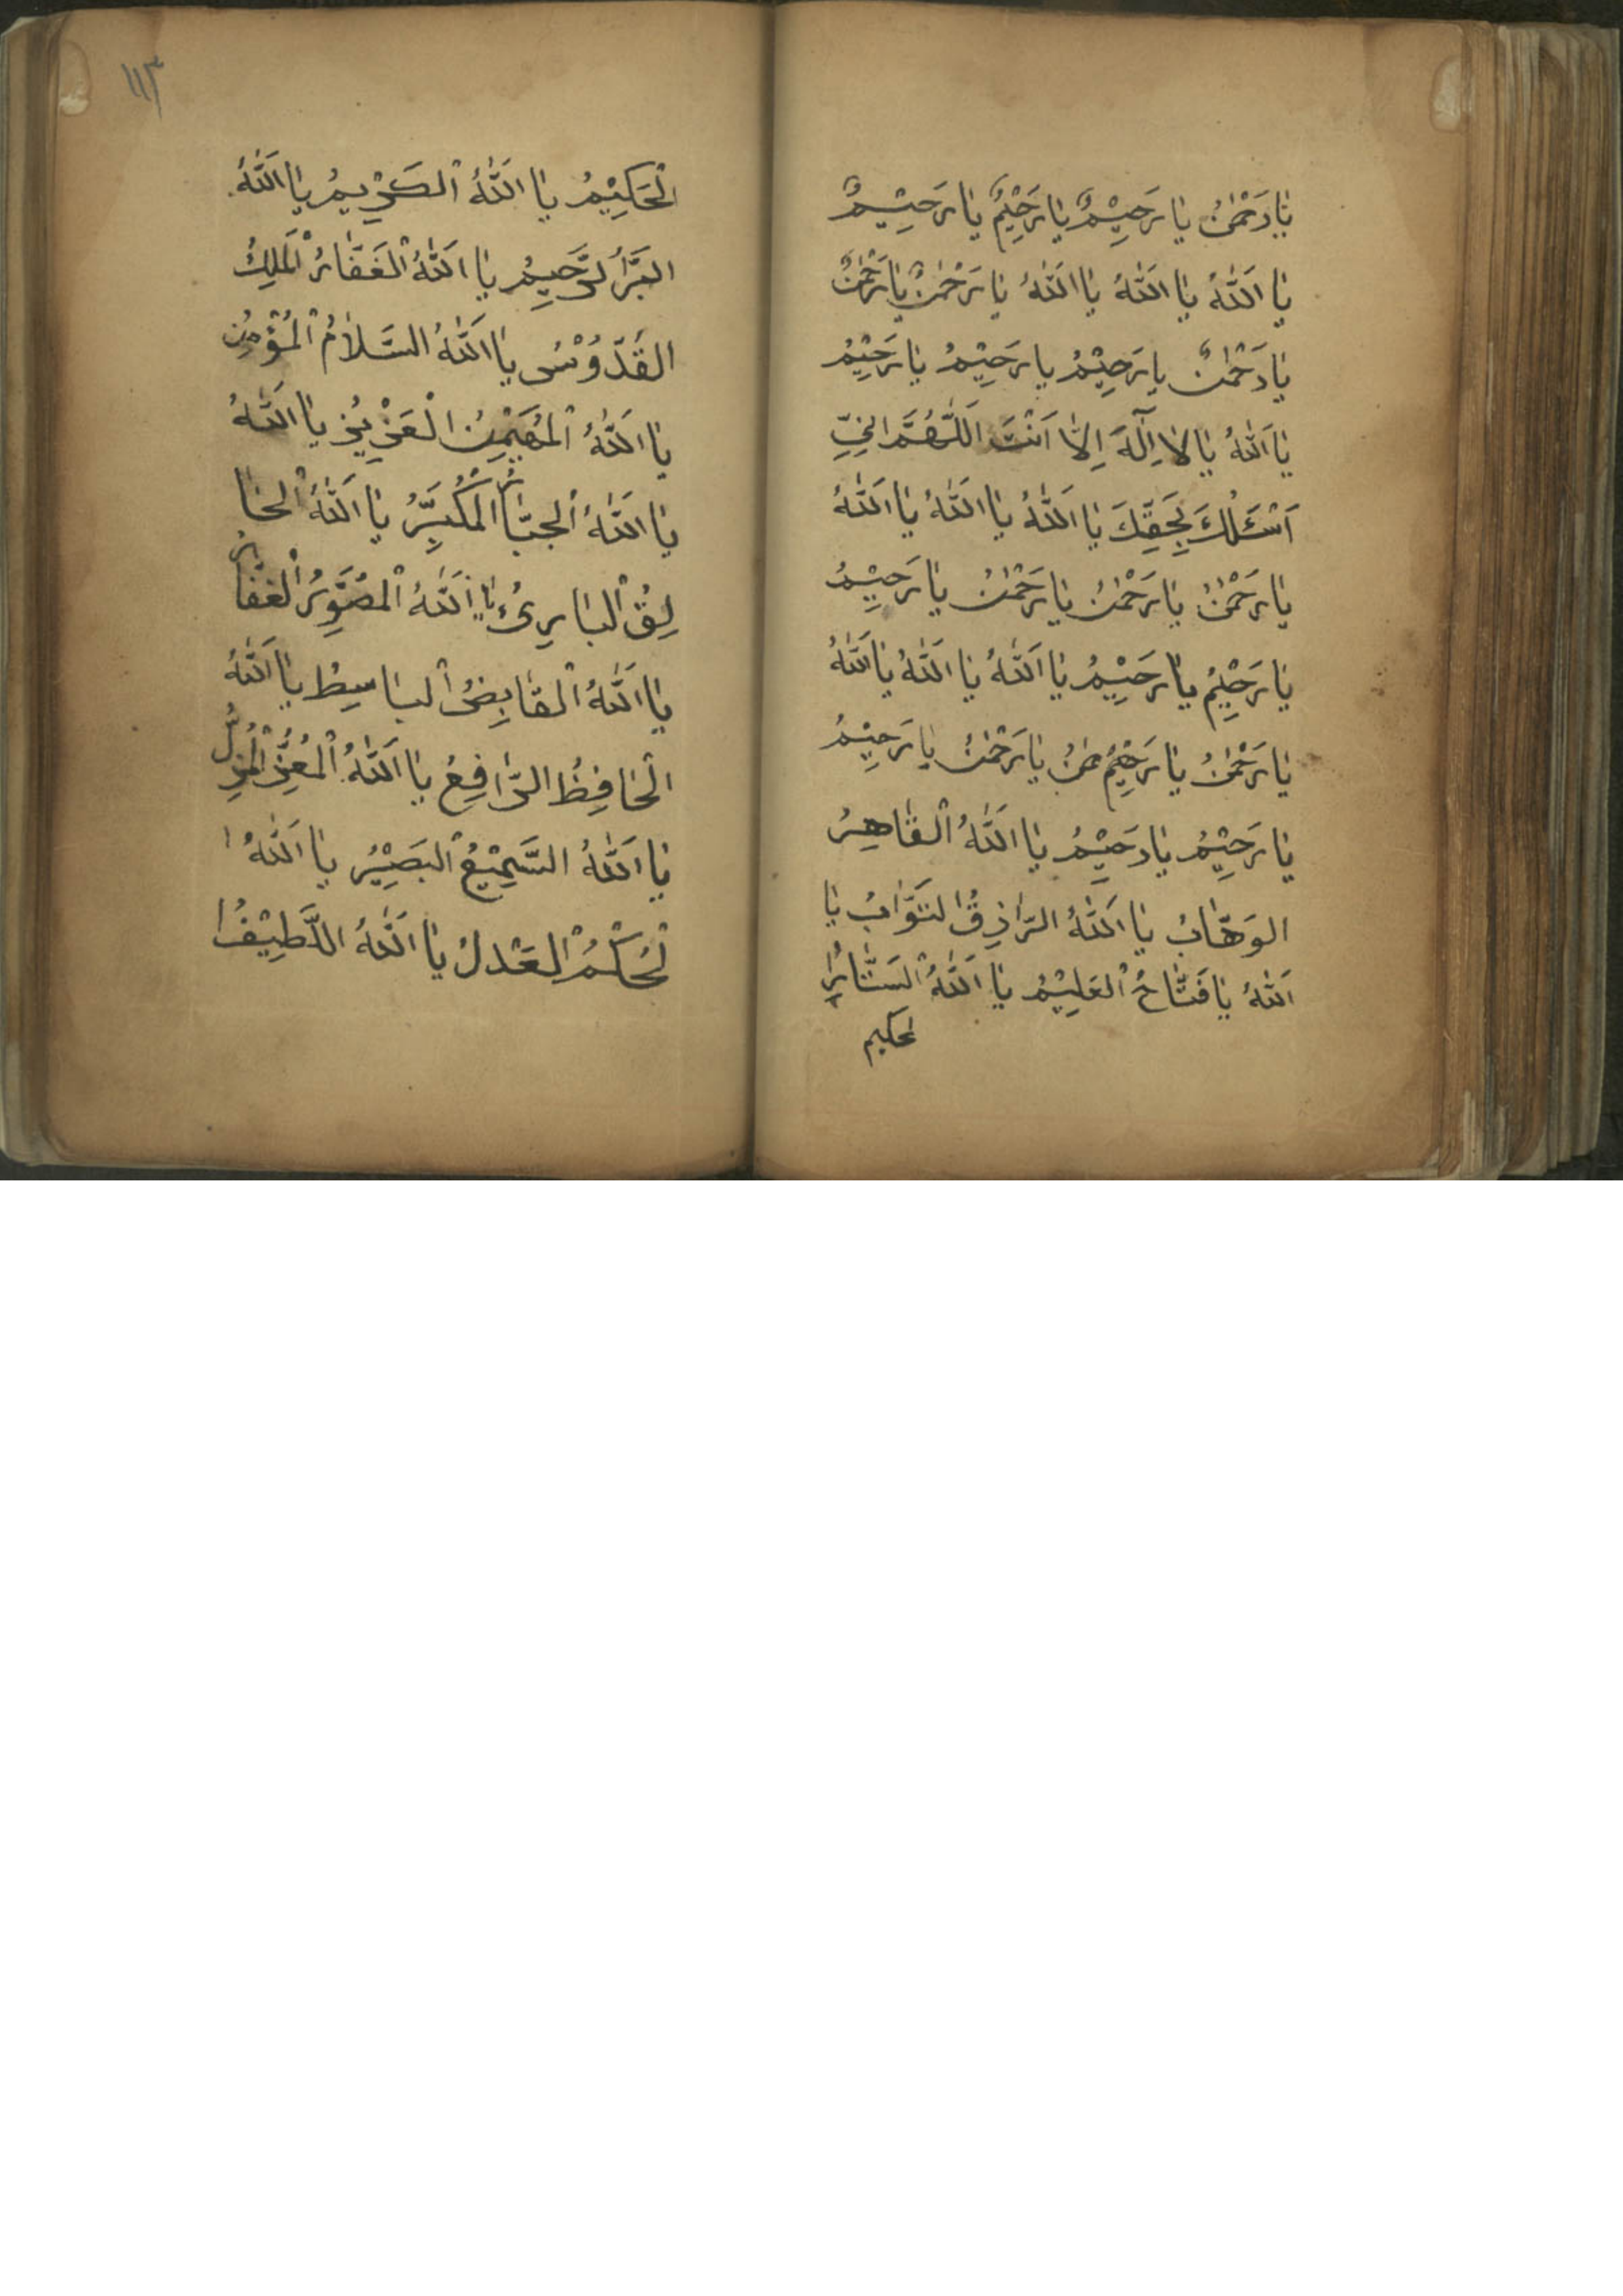 يَا رَحْمٰنُ يَا رَحِيْمٌ يَا رَحِيْمٌ يَا رَحِيْمٌ
يَا اَللّٰهُ يَا اَللّٰهُ يَا اَللّٰهُ يَا رَحْمٰنٌ يَا رَحْمٰنٌ
يَا رَحْمٰنٌ يَا رَحِيْمُ يَا رَحِيْمُ يَا رَحِيْمُ
يَا اَللّٰهُ يَا لَا اِلٰهَ اِلَّا اَنْتَ اَللّٰهُمَّ اِنِّي
اَسْئَلُكَ بِحَقِّكَ يَا اَللّٰهُ يَا اَللّٰهُ يَا اَللّٰهُ
يَا رَحْمٰنُ يَا رَحْمٰنُ يَا رَحْمٰنُ يَا رَحِيْمُ
يَا رَحِيْمُ يَا رَحِيْمُ يَا اَللّٰهُ يَا اَللّٰهُ يَا اَللّٰهُ
يَا رَحْمٰنُ يَا رَحْمٰنُ يَا رَحِيْمُ
يَا رَحِيْمُ يَا رَحِيْمُ يَا اَللّٰهُ الْقَاهِرُ
الوَهَّابُ يَا اَللّٰهُ الرَّازِقُ التَوَّابُ يَا
اَللّٰهُ يَا فَتَّاحُ الْعَلِيْمُ يَا اَللّٰهُ الْسَتَّارُ
لحكيم
١١٣
الْحَكِيْمُ يَا اَللّٰهُ الْكَرِيمُ يَا اَللّٰهُ
البَرُّ الرَّحِيمُ يَا اَللّٰهُ الْغَفَّارُ الْمَلِكُ
القُدُّوْسُ يَا اَللّٰهُ السَّلَامُ الْمُؤْمِنِ
يَا اَللّٰهُ الْمُهَيْمِنُ الْعَزِيْزُ يَا اَللّٰهُ
يَا اَللّٰهُ الْجبَّارُ الْمُكَبِّرُ يَا اَللّٰهُ الْخَا
لِقُ الْبَارِئُ يَا اَللّٰهُ الْمُصَوِّرُ الْغفَّارُ
يَا اَللّٰهُ الْقَابِضُ الْبَاسِطُ يَا اَللّٰهُ
الْخَافِظُ الرَّافِعُ يَا اَللّٰهُ الْمُعِزُّ الْمُذِلُّ
يَا اَللّٰهُ السَّمِيْعُ الْبَصِيْرُ يَا اَللّٰهُ ا
لْحُكْمُ الْعَدْلُ يَا اَللّٰهُ اللَّطِيْفُ ا